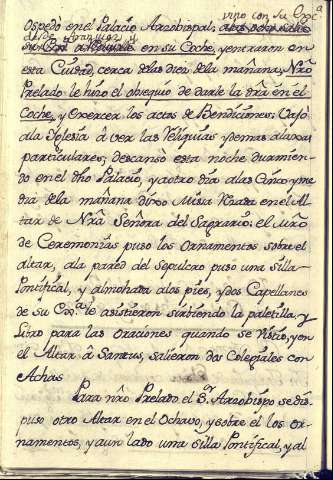 vino con su Exc.ª
ospedó en el Palacio Arzobispal;
desde Aranjuez y
en su Coche, y entraron en
esta Ciudad, cerca de las diez de la mañana, Nrô
Prelado le hizo el obsequio de darle la dra en el
Coche, y exercer los actos de Bendiciones; Vajó
ala Iglesia á ver las Reliquias y demas alaxas
particulares; descansó esta noche durmien-
do en el dho Palacio, y a otro dia alas Cinco y me
dia dela mañana dixo Misa Rezada en el Al-
tar de Nrâ Señora del Sagrario: el Mrô
de Ceremonias puso los Ornamentos sobre el
altar, ala pared del Sepulcro puso una Silla
Pontifical, y almohada alos pies, y dos Capellanes
de su Exª le asistieron sirbiendo la paletilla, y
Libro para las Oraciones quando se Vistió, y en
el Altar á Santus, salieron dos Colegiales con
Achas
Para nrô Prelado el S.r Arzobispo se dis-
puso otro Altar en el Ochavo, y sobre el los or-
namentos, y a un lado una silla Pontifical, y al